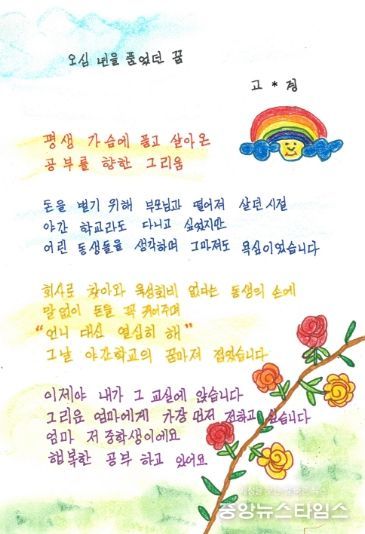 오십 년을 품었던 꿈
고*정
평생 가슴에 품고 살아온
공부를 향한 그리움
돈을 벌기 위해 부모님과 떨어져 살던 시절
야간 학교라도 다니고 싶었지만
어린 동생들을 생각하며 그마저도 욕심이었습니다
회사로 찾아와 육성회비 없다는 동생의 손에
말없이 돈을 꼭 쥐어주며
"언니 대신 열심히 해"
그날 야간학교의 꿈마저 접었습니다
이제야 내가 그 교실에 앉습니다
그리운 엄마에게 가장 먼저 전하고 싶습니다
엄마 저 중학생이에요
행복한 공부 하고 있어요
중앙뉴스타임스